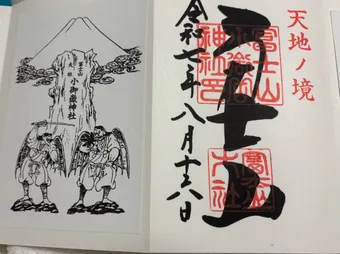 天地ノ境
富士山
富士山
小御嶽
令和七年八月十六日
小御嶽神社